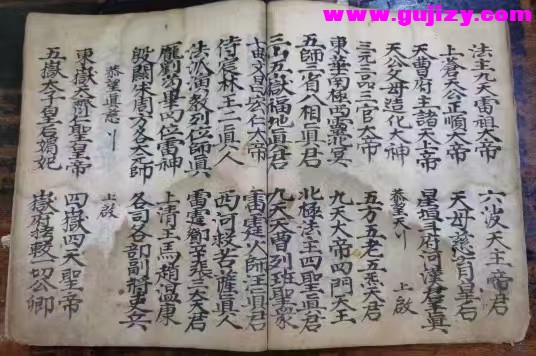 www.gujizy.com
法主九天雷祖大帝 六波天主帝君
上蒼天公正順大帝 天母慈育皇后
天曹府主諸天上帝 星垣斗府河漢群真
天公父母造化大神 恭望天 上啟
三元三品三官大帝 五方五老五炁天君
東華南極 九天大帝四門天王
五師三省八相真君 北極法主四聖真君
三山五嶽福地真君 九天天曹列班聖眾
七曲文昌宏仁大帝 雷霆火師王真君
侍宸林王二真人 西河救苦薩真人
法派演教列位師真 雷霆鄧辛張三天君
龐劉苟畢四位雷神 上清王馬趙溫康
殷關朱周 大 師 各司各部副將吏兵
恭望真慈 上啟
東嶽天齊仁聖皇帝 四嶽四天聖帝
五嶽太子皇后嬪妃 嶽府 較一切公卿